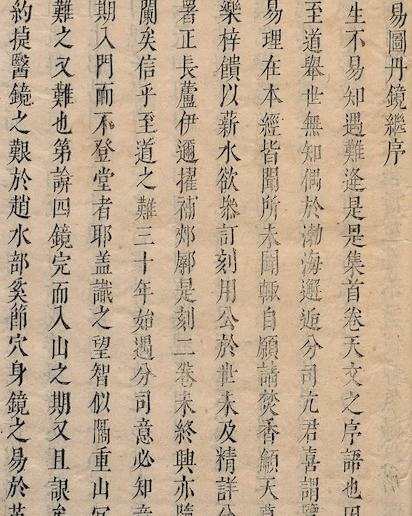 易圖丹鏡繼序
生不易知遇難逢是是集首卷天文之序語也因
至道舉世無知偶於渤海邂逅分司亢君喜謂
易理在本經皆聞所未聞輒自願請焚香籲天
樂梓饋以薪水欲叅訂刻用公於世未及精詳
署正長蘆伊邇擢補郊鄏是刻二卷未終興亦隨
闌矣信乎至道之難三十年始遇分司意必知
期入門而不登堂者耶盖識之望智似隔重山
難之又難也第諭四鏡完而入山之期又且
約㨗醫鏡之艱於趙水部奚節穴身鏡之易於